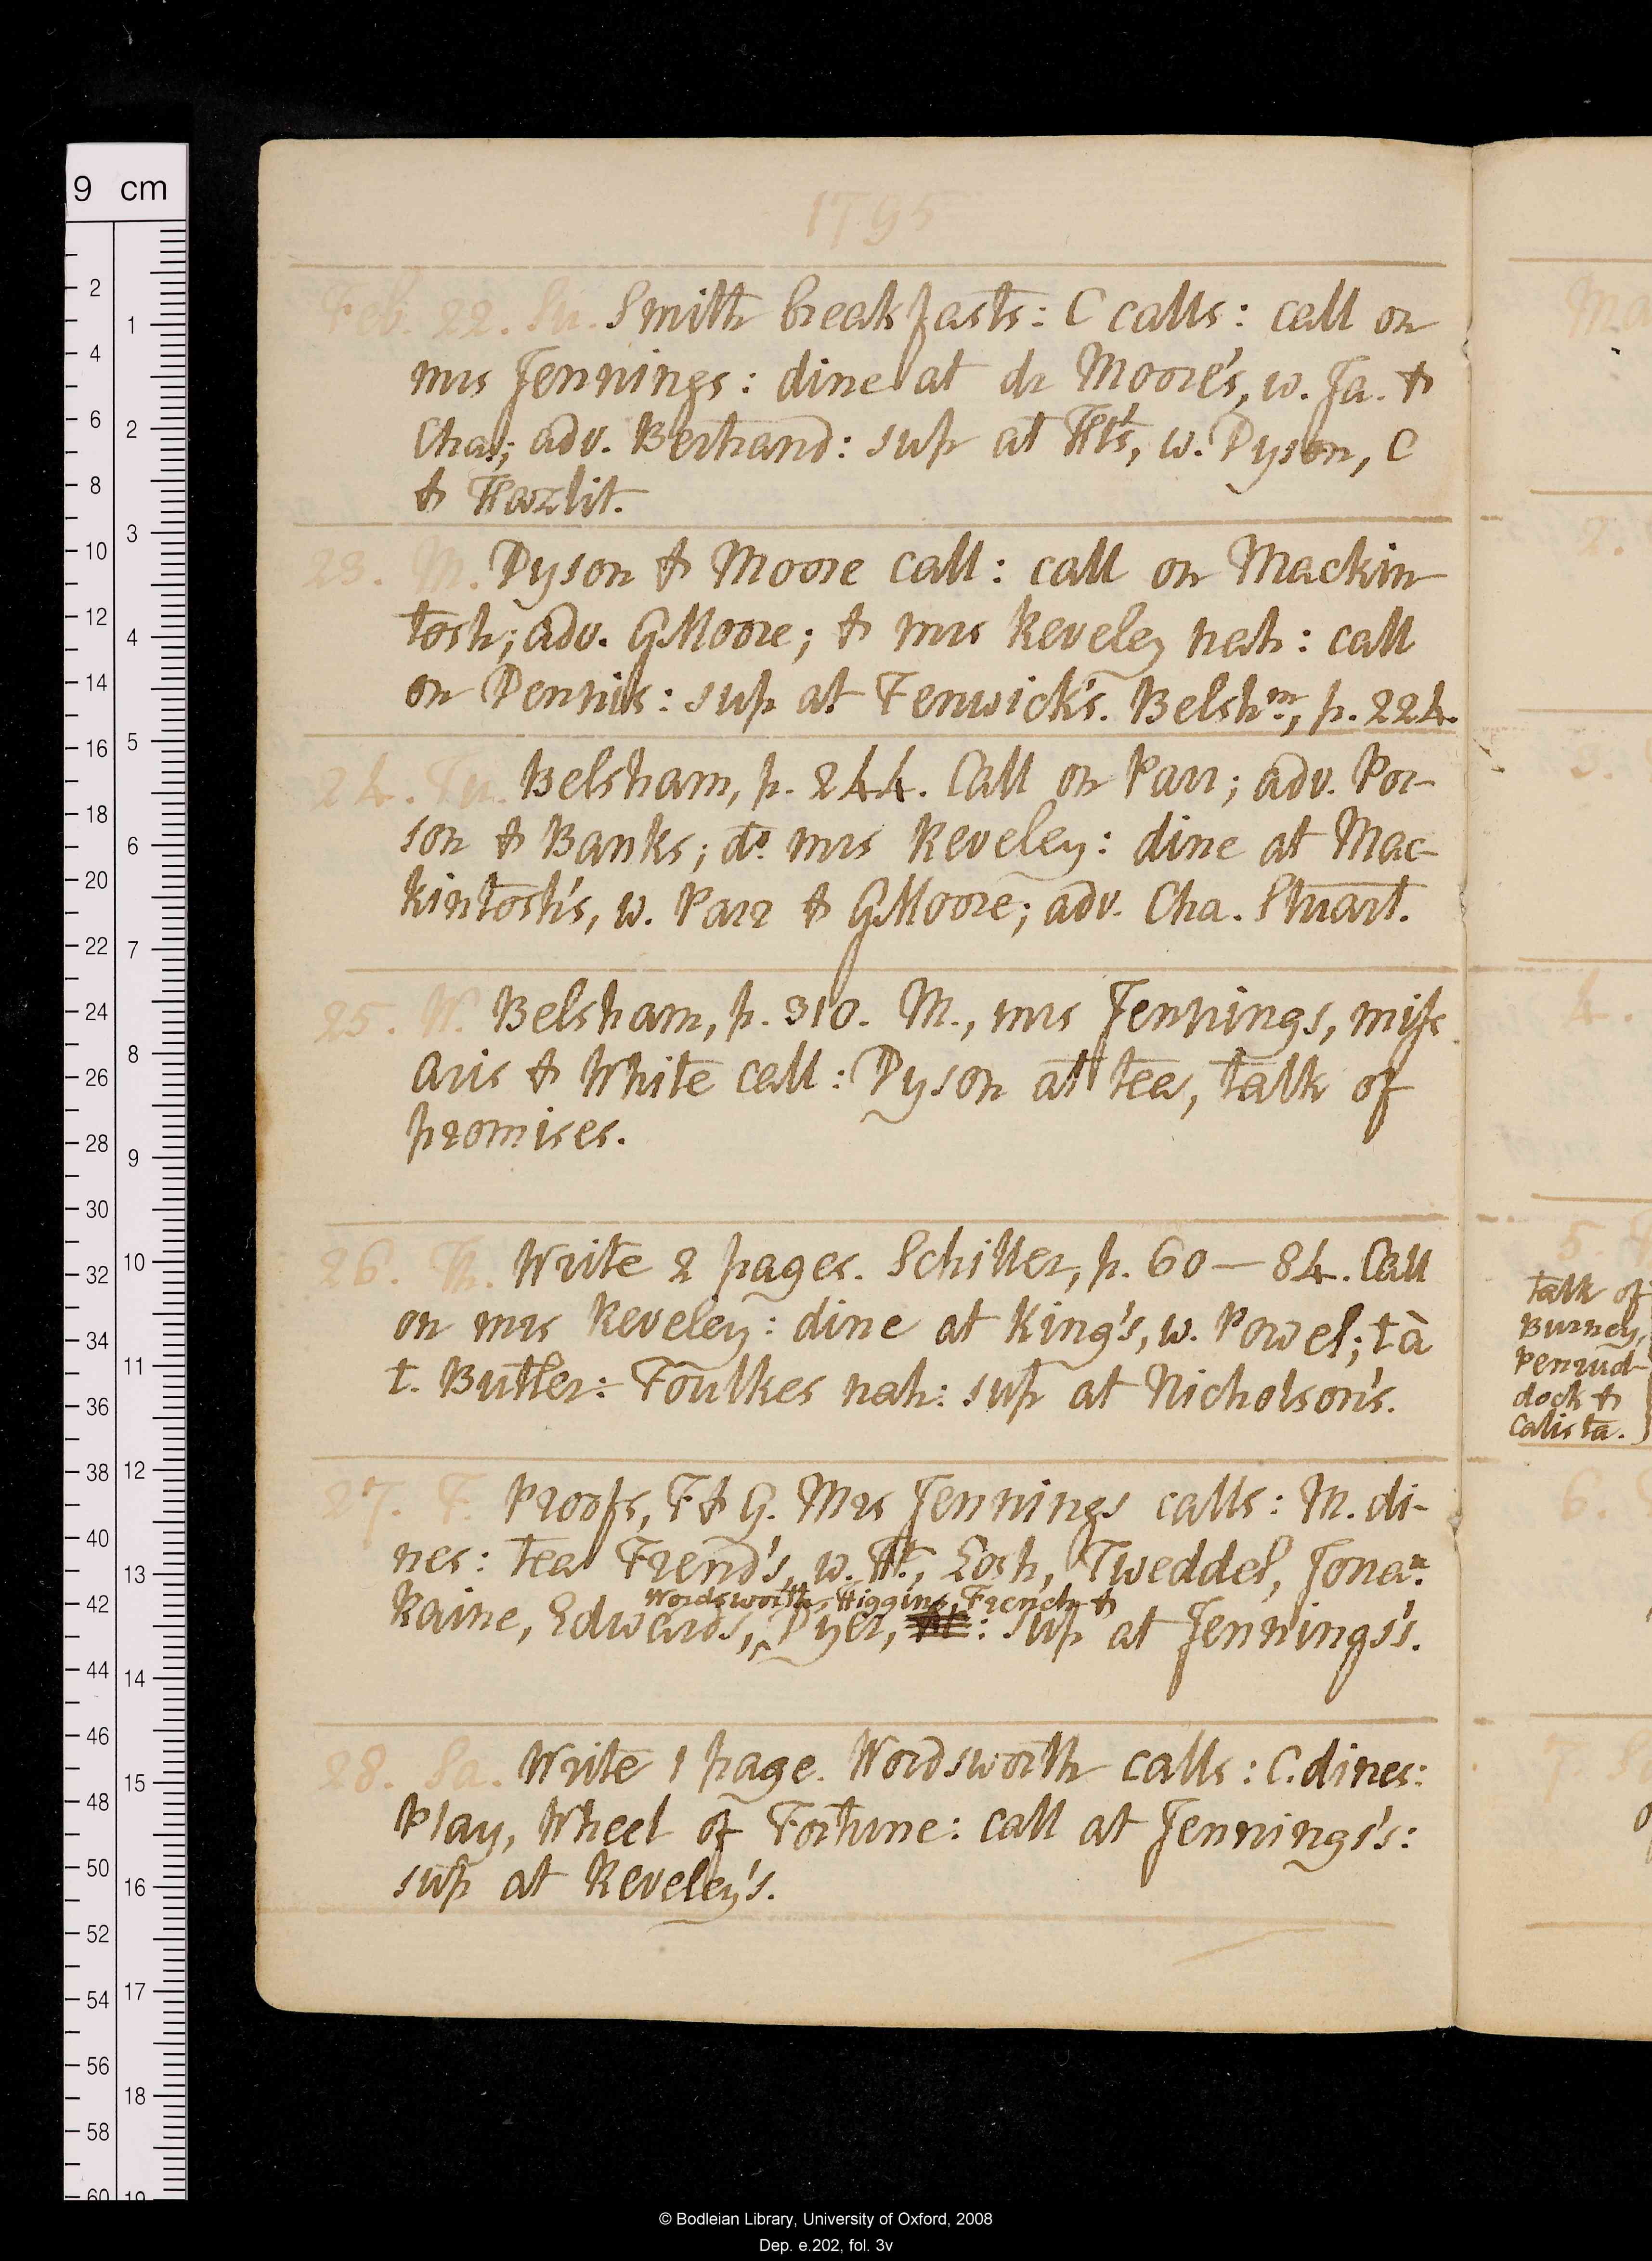 1795
Feb. 22. Su. Smith breakfasts: C calls: call on
mrs Jennings: dine at dr Moore's, w. Ja. &
Cha; adv. Bertrand: sup at Ht's, w. Dyson, C
& Hazlit.
23. M. Dyson & Moore call: call on Mackin
tosh; adv. GMoore; & mrs Reveley nah: call
on Dennis: sup at Fenwick's. Belshm, p. 224.
24. Tu. Belsham, p. 244. Call on Parr; adv. Por-
son & Banks; do. mrs Reveley: dine at Mac-
kintosh's, w. Parr & GMoore; adv. Cha. Stuart.
25. W. Belsham, p. 310. M., mrs Jennings, miss
Aris & White call: Dyson at tea, talk of
promises.
26. Th. Write 2 pages. Schiller, p. 60—84. Call
on mrs Reveley: dine at King's, w. Powel; t à
t. Butler: Foulkes nah: sup at Nicholson's.
27. F. Proofs, F & G. Mrs Jennings calls: M. di-
nes: tea Frend's, w. Ht., Losh, Tweddel, Jonan.
Wordsworth, Higgins, French &
Raine, Edwards, ‸ Dyer, : sup at Jennings's.
28. Sa. Write 1 page. Wordsworth calls: C. dines:
Play, Wheel of Fortune: call at Jennings's:
sup at Reveley's.
talk of
Burney,
Penrud-
dock &
Calista.
2.
3.
4.
5.
6.
7.
9 cm
2
4
6
8
10
12
14
16
18
20
22
24
26
28
30
32
34
36
38
40
42
44
46
48
50
52
54
56
58
60
1
2
3
4
5
6
7
8
9
10
11
12
13
14
15
16
17
18
19
© Bodleian Library, University of Oxford, 2008
Dep. e.202, fol. 3v